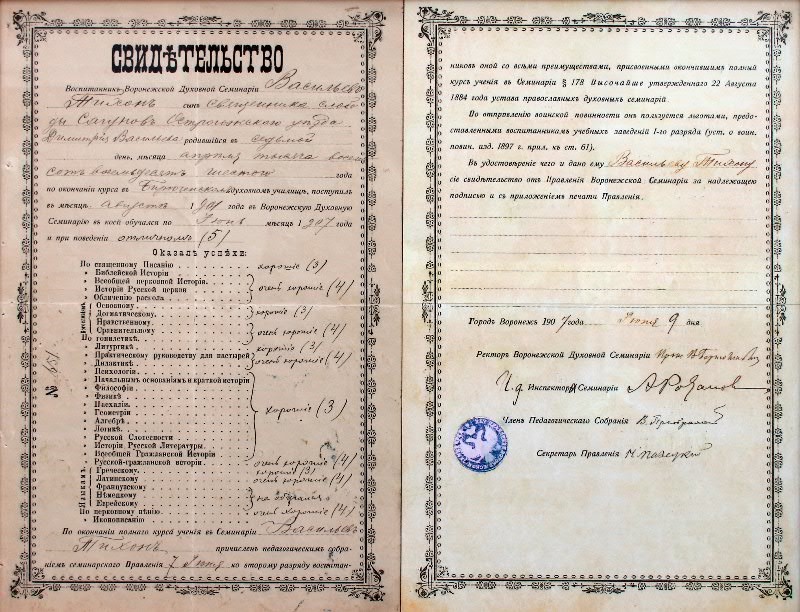 СВИДѢТЕЛЬСТВО
Воспитанникъ Воронежской Духовной Семинаріи Васильевъ
Тихонъ сынъ священника слобо
ды Сагуновъ Острогожскаго уѣзда
Димитрія Васильева родившійся въ седьмой
день, мѣсяца апрѣля тысяча восемь
сотъ восемьдесятъ шестого года
по окончаніи курса въ духовномъ училищѣ, поступилъ
въ мѣсяцѣ Августѣ 1901 года въ Воронежскую Духовную
Семинарію въ коей обучался по Іюнь мѣсяцъ 1907 года
и при поведеніи отличномъ (5)
Оказалъ успѣхи:
По священному Писанію хорошіе (3)
" Библейской Исторіи
" Всеобщей церковной Исторіи
" Исторіи Русской церкви очень хорошіе (4)
" Обличенію раскола
Богословіямъ:
Основному
Догматическому хорошіе (3)
Нравственному
Сравнительному очень хорошіе (4)
По гомилетикѣ
" Литургикѣ хорошіе (3)
" Практическому руководству для пастырей
" Дидактикѣ очень хорошіе (4)
" Психологіи
" Начальнымъ основаніямъ и краткой исторіи
" Философіи
" Физикѣ
" Пасхаліи
" Геометріи хорошіе (3)
" Алгебрѣ
" Логикѣ
" Русской Словесности
" Исторіи Русской Литературы
" Всеобщей Гражданской Исторіи
" Русской-гражданской исторіи очень хорошіе (4)
Языкамъ:
Греческому хорошіе (3)
Латинскому очень хорошіе (4)
Французскому
Нѣмецкому не обучался
Еврейскому
" По церковному пѣнію очень хорошіе (4)
" Иконописанію
По окончаніи полнаго курса ученія въ Семинаріи Васильевъ
Тихонъ причисленъ педагогическимъ собра-
ніемъ семинарскаго Правленія 7 Іюня ко второму разряду воспитан-
№ 651
никовъ оной со всѣми преимуществами, присвоенными окончившимъ полный
курсъ ученія въ Семинаріи § 178 Высочайше утвержденнаго 22 Августа
1884 года устава православныхъ духовныхъ семинарій.
По отправленію воинской повинности онъ пользуется льготами, предо-
ставленными воспитанникамъ учебныхъ заведеній 1-го разряда (уст. о воин.
повин. изд. 1897 г. прил. къ ст. 61).
Въ удостовѣреніе чего и дано ему Васильеву Тихону
сіе свидѣтельство отъ Правленія Воронежской Семинаріи за надлежащею
подписью и съ приложеніемъ печати Правленія.
Городъ Воронежъ 1907 года Іюня 9 дня
Ректоръ Воронежской Духовной Семинаріи
И. д. Инспектора Семинаріи А Розановъ
Членъ Педагогическаго Собранія
Секретарь Правленія